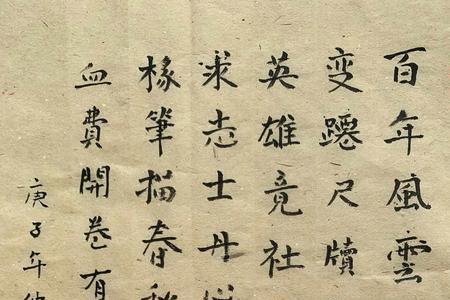 百年風雲
变遷尺牘
英雄竟社
求志士丹
椽筆描春秋
血費開卷有
庚子年仲